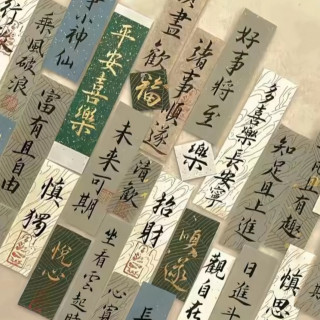 行
乘風破浪
小神仙
平安喜樂
盡歡
諸事順遂
好事將至
福
樂
多喜樂長安寧
知足且上進
且有趣
富有且自由
未來可期
慎獨
清歡
招財
順遂
觀自在
日進斗
慎思
悅心
坐看雲起時
心寬
長